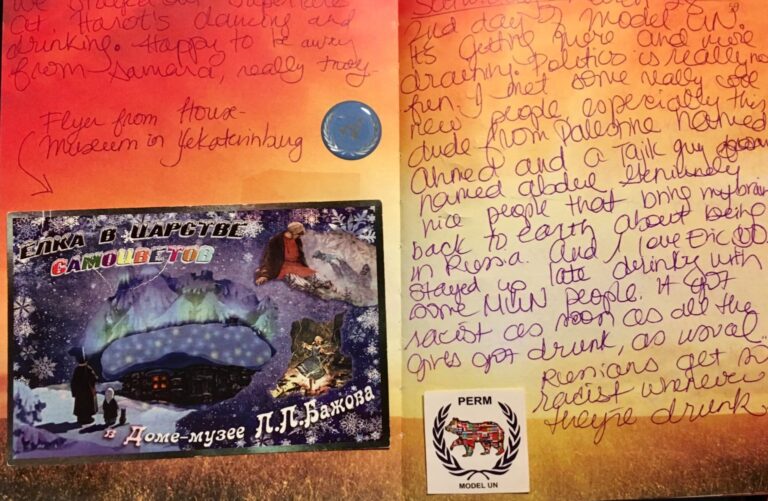 we stayed our
at Harot's dancing and
drinking. Happy to be away
from Samara, really truly
Flyer from House-
Museum in Yekaterinburg
ЕЛКА В ЦАРСТВЕ
САМОЦВЕТОВ
в Доме-музее П.П.Бажова
2nd day of Model UN.
It's getting more and more
draining. Politics is really no
fun. I met some really cool
new people, especially this
dude from Palestine named
Ahmed and a Tajik guy
named Abdul. Genuinely
nice people that bring my brain
back to earth about being
in Russia. and I love Eric
Stayed up late drinking with
some MUN people. It got
racist as soon as all the
guys got drunk, as usual.
Russians get so
racist whenever
they're drunk
PERM
MODEL UN